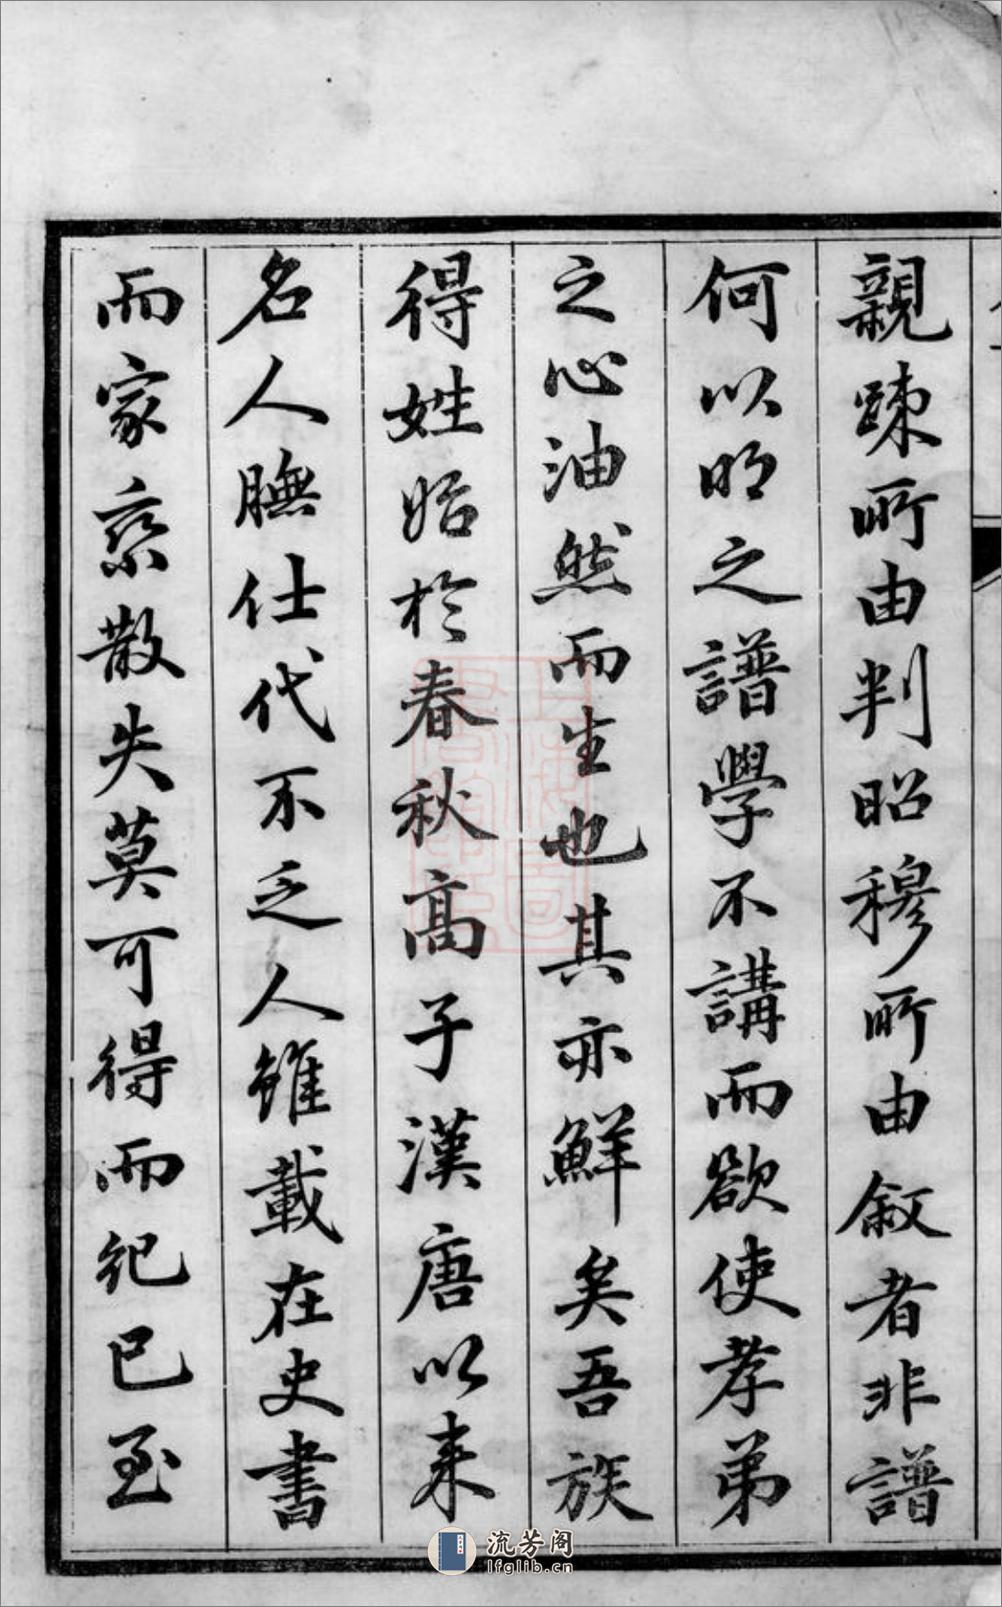 親踈所由判昭穆所由敘者非譜
何以明之譜學不講而欲使孝弟
之心油然而生也其亦鮮矣吾族
得姓始於春秋高子漢唐以來
名人膴仕代不乏人雖載在史書
而家乘散失莫可得而紀已至
流芳阁
lfglib.cn